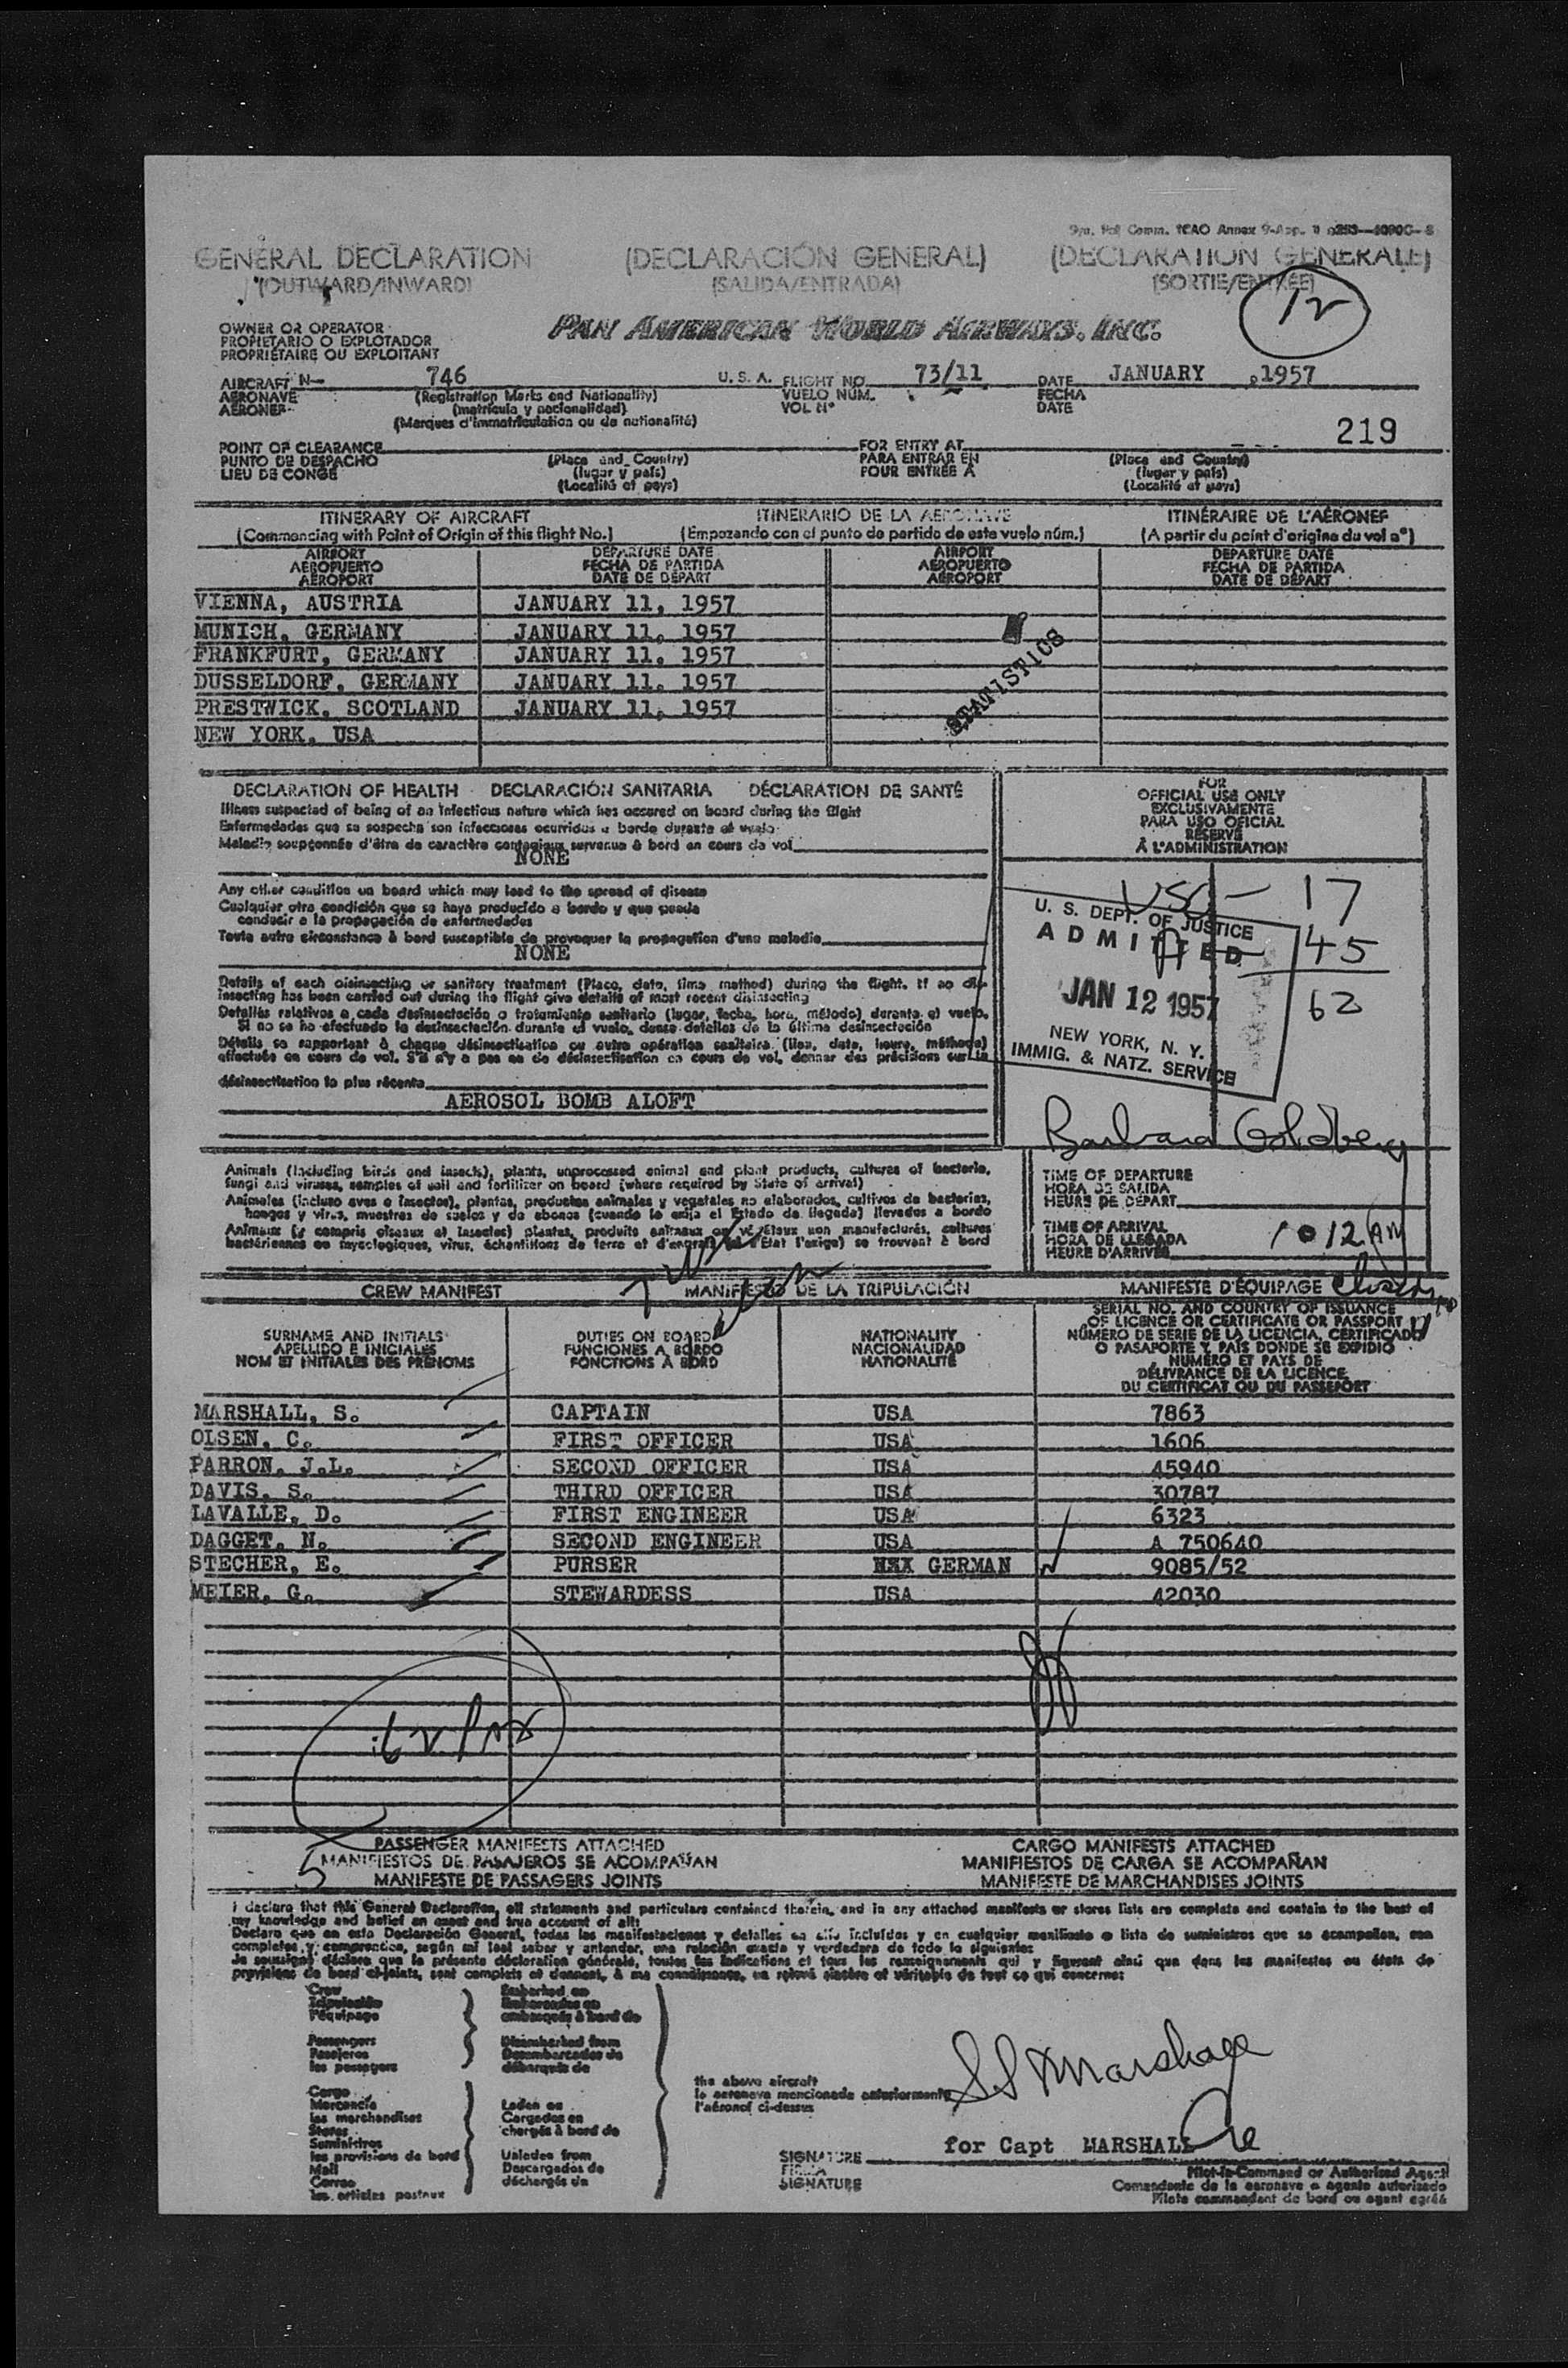 GENERAL DECLARATION (DECLARACIÓN GENERAL) (DECLARATION GENERALE)
(OUTWARD/INWARD) (SALIDA/ENTRADA) (SORTIE/ENTRÉE)
12
OWNER OR OPERATOR
PROPIETARIO O EXPLOTADOR
PROPRIÉTAIRE OU EXPLOITANT
PAN AMERICAN WORLD AIRWAYS, INC.
AIRCRAFT N— 746 U. S. A. FLIGHT NO. 73/11 DATE JANUARY , 1957
AERONAVE (Registration Marks and Nationality) VUELO NÚM. FECHA
AÉRONEF (matrícula y nacionalidad) VOL N° DATE
(Marques d'immatriculation ou de nationalité)
219
POINT OF CLEARANCE FOR ENTRY AT
PUNTO DE DESPACHO (Place and Country) PARA ENTRAR EN (Place and Country)
LIEU DE CONGÉ (lugar y país) POUR ENTRÉE À (lugar y país)
(Localité et pays) (Localité et pays)
ITINERARY OF AIRCRAFT ITINERARIO DE LA AERONAVE ITINÉRAIRE DE L'AÉRONEF
(Commencing with Point of Origin of this flight No.) (Empezando con el punto de partida de este vuelo núm.) (A partir du point d'origine du vol n°)
AIRPORT DEPARTURE DATE AIRPORT DEPARTURE DATE
AEROPUERTO FECHA DE PARTIDA AEROPUERTO FECHA DE PARTIDA
AÉROPORT DATE DE DÉPART AÉROPORT DATE DE DÉPART
VIENNA, AUSTRIA JANUARY 11, 1957
MUNICH, GERMANY JANUARY 11, 1957
FRANKFURT, GERMANY JANUARY 11, 1957
DUSSELDORF, GERMANY JANUARY 11, 1957
PRESTWICK, SCOTLAND JANUARY 11, 1957
NEW YORK, USA
STATISTICS
DECLARATION OF HEALTH DECLARACIÓN SANITARIA DÉCLARATION DE SANTÉ
Illness suspected of being of an infectious nature which has occured on board during the flight
Enfermedades que se sospecha son infecciosas ocurridas a bordo durante el vuelo
Maladie soupçonnée d'être de caractère contagieux survenue à bord en cours de vol
NONE
Any other condition on board which may lead to the spread of disease
Cualquier otra condición que se haya producido a bordo y que pueda
conducir a la propagación de enfermedades
Toute autre circonstance à bord susceptible de provoquer la propagation d'une maladie
NONE
Details of each disinsecting or sanitary treatment (Place, date, time method) during the flight. If no dis-
insecting has been carried out during the flight give details of most recent disinsecting
Detalles relativos a cada desinsectación o tratamiento sanitario (lugar, fecha, hora, método) durante el vuelo.
Si no se ha efectuado la desinsectación durante el vuelo, dense detalles de la última desinsectación
Détails se rapportant à chaque désinsectisation ou autre opération sanitaire (lieu, date, heure, méthode)
effectuée en cours de vol. S'il n'y a pas eu de désinsectisation en cours de vol, donner des précisions sur la
désinsectisation la plus récente
AEROSOL BOMB ALOFT
FOR
OFFICIAL USE ONLY
EXCLUSIVAMENTE
PARA USO OFICIAL
RÉSERVÉ
À L'ADMINISTRATION
17
45
62
U. S. DEPT. OF JUSTICE
ADMITTED
JAN 12 1957
NEW YORK, N. Y.
IMMIG. & NATZ. SERVICE
Barbara Goldberg
Animals (including birds and insects), plants, unprocessed animal and plant products, cultures of bacteria,
fungi and viruses, samples of soil and fertilizer on board (where required by State of arrival)
Animales (incluso aves e insectos), plantas, productos animales y vegetales no elaborados, cultivos de bacterias,
hongos y virus, muestras de suelos y de abonos (cuando lo exija el Estado de llegada) llevados a bordo
Animaux (y compris oiseaux et insectes) plantes, produits animaux ou végétaux non manufacturés, cultures
bactériennes ou mycologiques, virus, échantillons de terre et d'engrais (si l'État l'exige) se trouvant à bord
TIME OF DEPARTURE
HORA DE SALIDA
HEURE DE DÉPART
TIME OF ARRIVAL
HORA DE LLEGADA
HEURE D'ARRIVÉE
1012 AM
CREW MANIFEST MANIFIESTO DE LA TRIPULACIÓN MANIFESTE D'ÉQUIPAGE
SURNAME AND INITIALS DUTIES ON BOARD NATIONALITY SERIAL NO. AND COUNTRY OF ISSUANCE
APELLIDO E INICIALES FUNCIONES A BORDO NACIONALIDAD OF LICENCE OR CERTIFICATE OR PASSPORT
NOM ET INITIALES DES PRÉNOMS FONCTIONS À BORD NATIONALITÉ NÚMERO DE SERIE DE LA LICENCIA, CERTIFICADO
O PASAPORTE Y PAÍS DONDE SE EXPIDIÓ
NUMÉRO ET PAYS DE
DÉLIVRANCE DE LA LICENCE
DU CERTIFICAT OU DU PASSEPORT
MARSHALL, S. CAPTAIN USA 7863
OLSEN, C. FIRST OFFICER USA 1606
PARRON, J.L. SECOND OFFICER USA 45940
DAVIS, S. THIRD OFFICER USA 30787
LAVALLE, D. FIRST ENGINEER USA 6323
DAGGET, N. SECOND ENGINEER USA A 750640
STECHER, E. PURSER GERMAN 9085/52
MEIER, G. STEWARDESS USA 42030
62 Pax
5
PASSENGER MANIFESTS ATTACHED CARGO MANIFESTS ATTACHED
MANIFIESTOS DE PASAJEROS SE ACOMPAÑAN MANIFIESTOS DE CARGA SE ACOMPAÑAN
MANIFESTE DE PASSAGERS JOINTS MANIFESTE DE MARCHANDISES JOINTS
I declare that this General Declaration, all statements and particulars contained therein, and in any attached manifests or stores lists are complete and contain to the best of
my knowledge and belief an exact and true account of all:
Declaro que en esta Declaración General, todas las manifestaciones y detalles en ella incluídos y en cualquier manifiesto o lista de suministros que se acompañen, son
completos y comprenden, según mi leal saber y entender, una relación exacta y verdadera de todo lo siguiente:
Je soussigné déclare que la présente déclaration générale, toutes les indications et tous les renseignements qui y figurent ainsi que dans les manifestes ou états de
provisions de bord ci-joints, sont complets et donnent, à ma connaissance, un relevé sincère et véritable de tout ce qui concerne:
Crew Embarked on
Tripulación Embarcados en
l'équipage embarqués à bord de
Passengers Disembarked from
Pasajeros Desembarcados de
les passagers débarqués de
Cargo
Mercancía Laden on
les marchandises Cargados en
Stores chargés à bord de
Suministros
les provisions de bord Unladen from
Mail Descargados de
Correo déchargés de
les articles postaux
the above aircraft
la aeronave mencionada anteriormente
l'aéronef ci-dessus
SS Marshall
for Capt MARSHALL
SIGNATURE
FIRMA
SIGNATURE
Pilot-in-Command or Authorized Agent
Comandante de la aeronave o agente autorizado
Pilote commandant de bord ou agent agréé